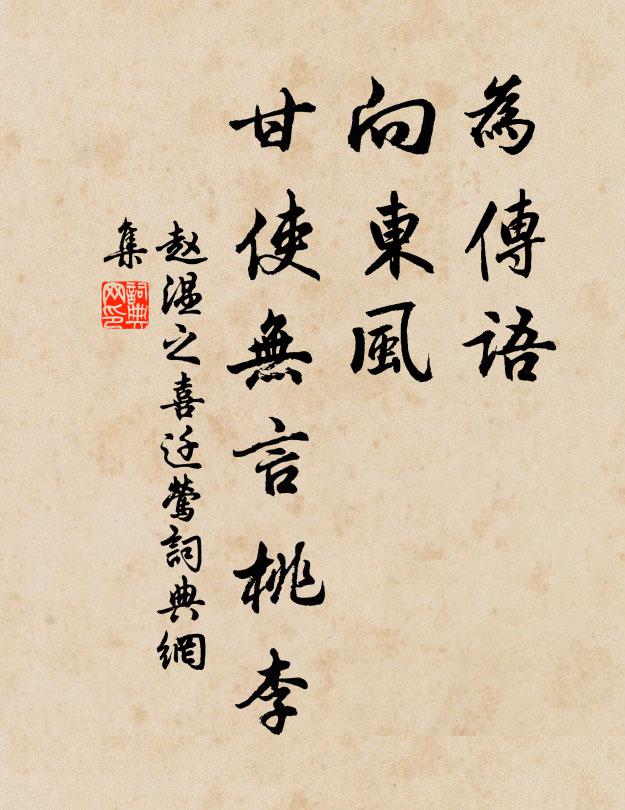 為傳語
向東風
甘使無言桃李
赵溫之喜迁鶯詞典網
集
詞典
网印